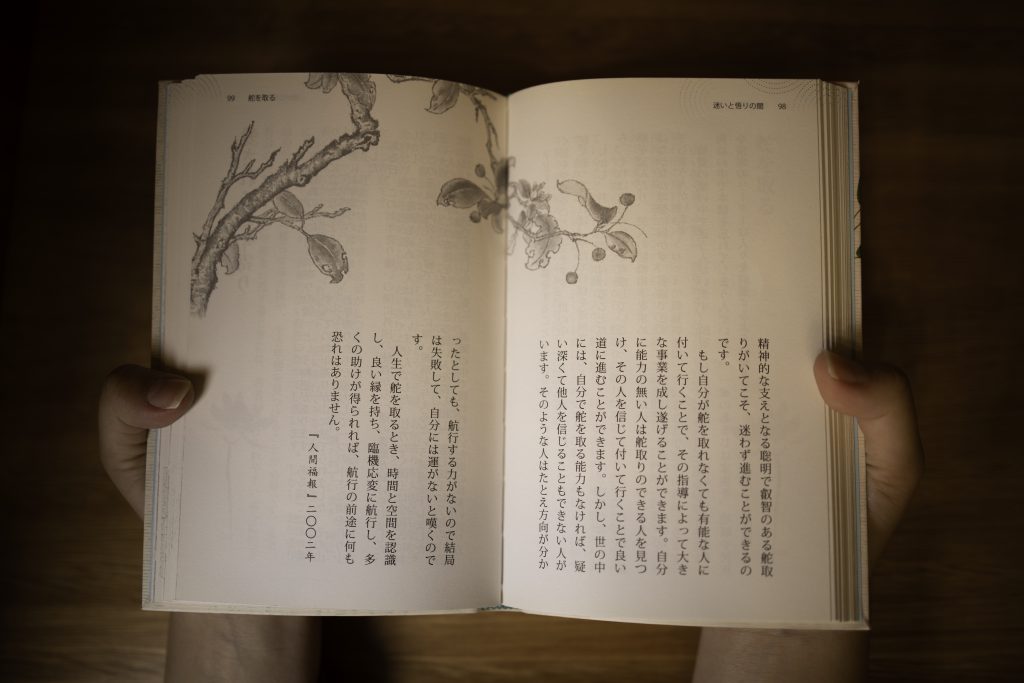 迷いと悟りの間 98
精神的な支えとなる聡明で叡智のある舵取
りがいてこそ、迷わず進むことができるの
です。
もし自分が舵を取れなくても有能な人に
付いて行くことで、その指導によって大き
な事業を成し遂げることができます。自分
に能力の無い人は舵取りのできる人を見つ
け、その人を信じて付いて行くことで良い
道に進むことができます。しかし、世の中
には、自分で舵を取る能力もなければ、疑
い深くて他人を信じることもできない人が
います。そのような人はたとえ方向が分か
99 舵を取る
ったとしても、航行する力がないので結局
は失敗して、自分には運がないと嘆くので
す。
人生で舵を取るとき、時間と空間を認識
し、良い縁を持ち、臨機応変に航行し、多
くの助けが得られれば、航行の前途に何も
恐れはありません。
『人間福報』二〇〇二年